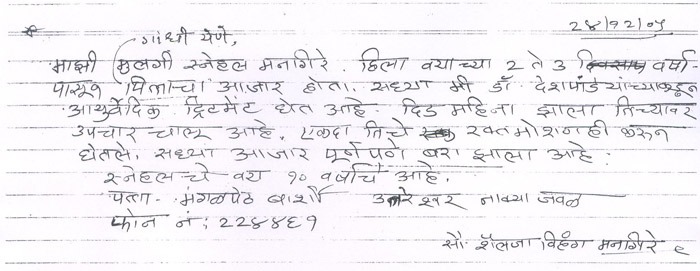 २४/१२/०५
गांधी येणे,
माझी मुलगी स्नेहल मनगिरे. हिला वयाच्या २ ते ३ वर्षा-
पासून पित्ताचा आजार होता. सध्या मी डॉ. देशपांडे यांच्याकडून
आयुर्वेदिक ट्रिटमेंट घेत आहे. दिड महिना झाला तिच्यावर
उपचार चालू आहे. एकदा तिचे रक्तमोक्षणही करून
घेतले. सध्या आजार पूर्णपणे बरा झाला आहे.
स्नेहलचे वय १० वर्षाचे आहे.
पत्ता - मंगळपेठ बार्शी उत्तरेश्वर नाक्या जवळ
फोन नं: २२४४६१
सौ. शैलजा विहंग मनगिरे